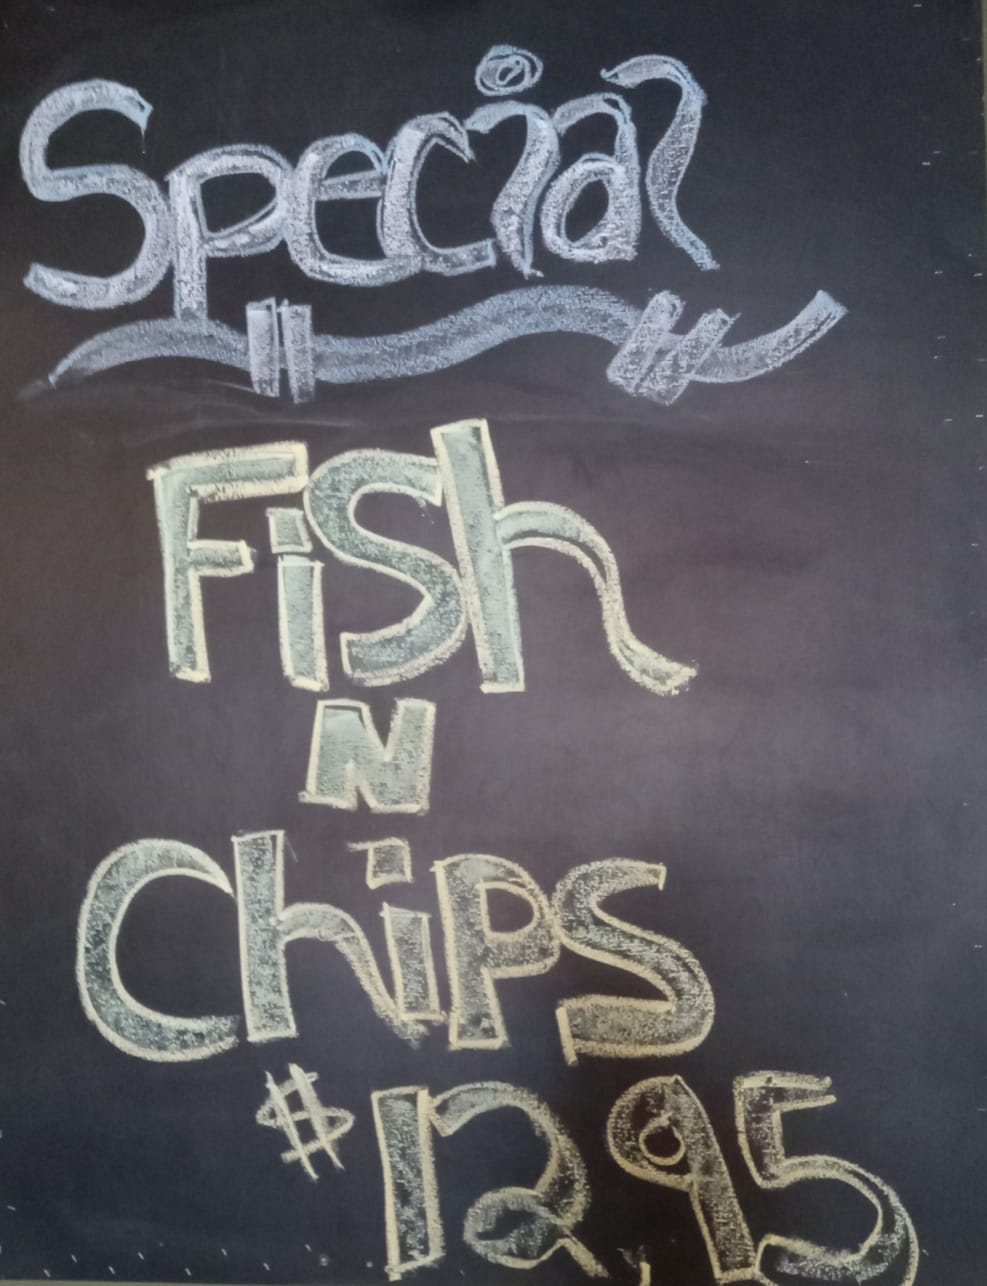 Special
Fish
N
Chips
$12.95